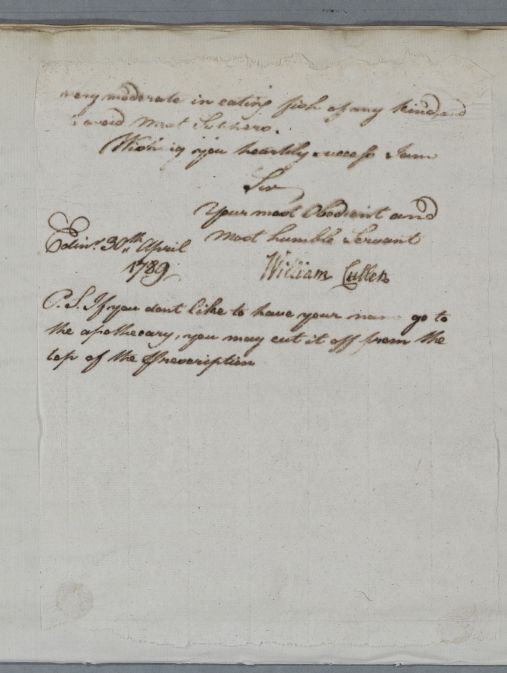 very moderate in eating fish of any kind and
avoid most
Wishing you heartily success I am
Sir
Your most Obedient and
most humble Servant
Edinr. 30th April
1789
William Cullen
P.S. If you dont like to have your name go to
the apothecary, you may cut it off from the
top of the Prescription